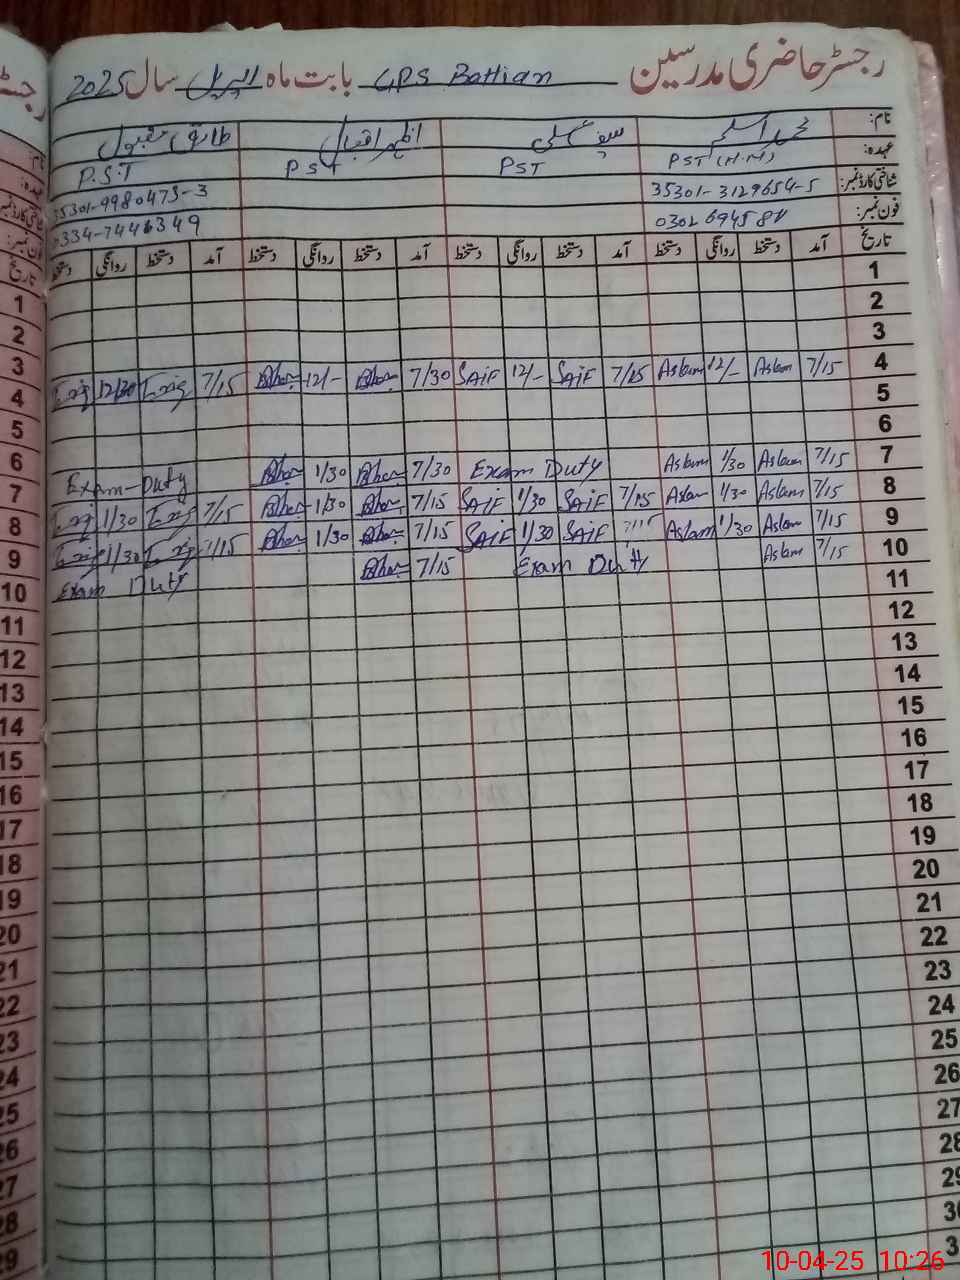 رجسٹر حاضری مدرسین GPS Bathian بابت ماہ اپریل سال 2025
نام: محمد اسلم سیف علی اظہر اقبال طارق مقبول
عہدہ: PST (H.M) PST PST P.S.T
شناختی کارڈ نمبر: 35301-3129654-5 35301-9980473-3
فون نمبر: 0334-7446349
تاریخ آمد دستخط روانگی دستخط آمد دستخط روانگی دستخط آمد دستخط روانگی دستخط آمد دستخط روانگی دستخط
1
2
3
4 7/15 Aslam 12/- Aslam 7/15 SAiF 12/- SAiF 7/30 12/- 7/15 12/30
5
6
7 7/15 Aslam 1/30 Aslam Exam Duty 7/30 1/30 Exam-Duty
8 7/15 Aslam 1/30 Aslam 7/15 SAiF 1/30 SAiF 7/15 1/30 7/15 1/30
9 7/15 Aslam 1/30 Aslam SAiF 1/30 SAiF 7/15 1/30 7/15 1/30
10 7/15 Aslam Exam Duty 7/15 Exam Duty
11
12
13
14
15
16
17
18
19
20
21
22
23
24
25
26
27
28
29
10-04-25 10:26